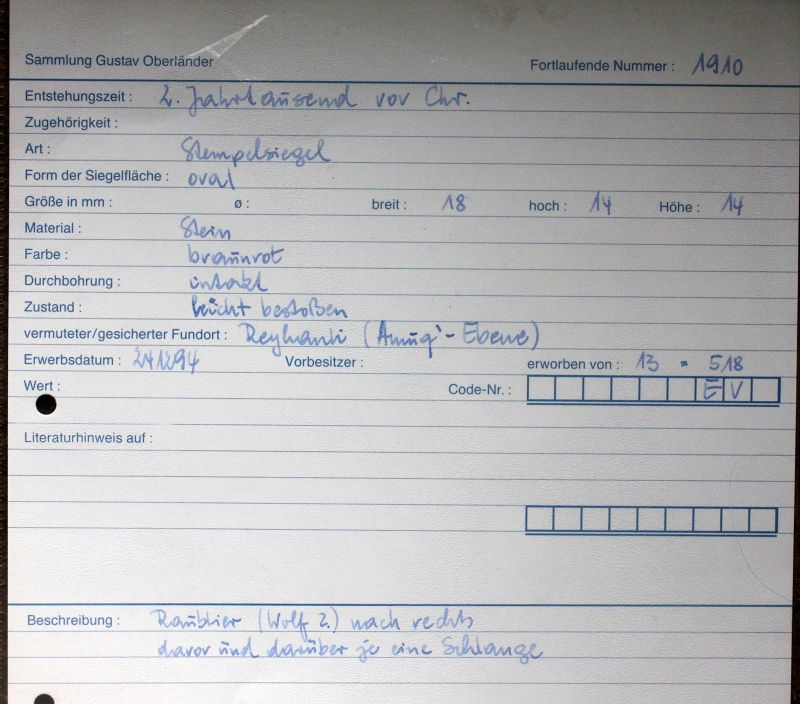 Sammlung Gustav Oberländer Fortlaufende Nummer : 1910
Entstehungszeit : 2. Jahrtausend vor Chr.
Zugehörigkeit :
Art : Stempelsiegel
Form der Siegelfläche : oval
Größe in mm : ø : breit : 18 hoch : 14 Höhe : 14
Material : Stein
Farbe : braunrot
Durchbohrung : intakt
Zustand : leicht bestoßen
vermuteter/gesicherter Fundort : Reyhanli (Amuq-Ebene)
Erwerbsdatum : Vorbesitzer : erworben von : 13 = 518
Wert : Code-Nr. : E V
Literaturhinweis auf :
Beschreibung : Raubtier (Wolf ?) nach rechts
davor und darüber je eine Schlange